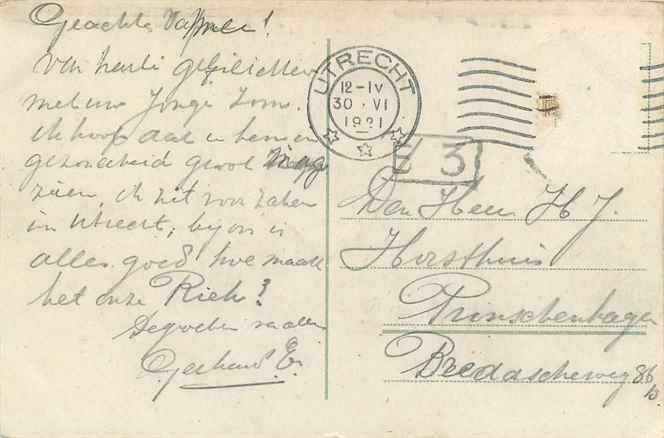 Geachte
Van harte gefeliciteer
met uw Jonge Zoon.
Ik hoop dat u hem in
gezondheid groot mag
zien. Ik zit voor zaken
in Utrecht, bij ons is
alles goed hoe maakt
het onze Riek?
De groeten van allen
Gerhard E.
UTRECHT
12-IV
30 VI
1921
3
Den Heer H J.
Horsthuis
Prinsenhagen
Bredascheweg 86